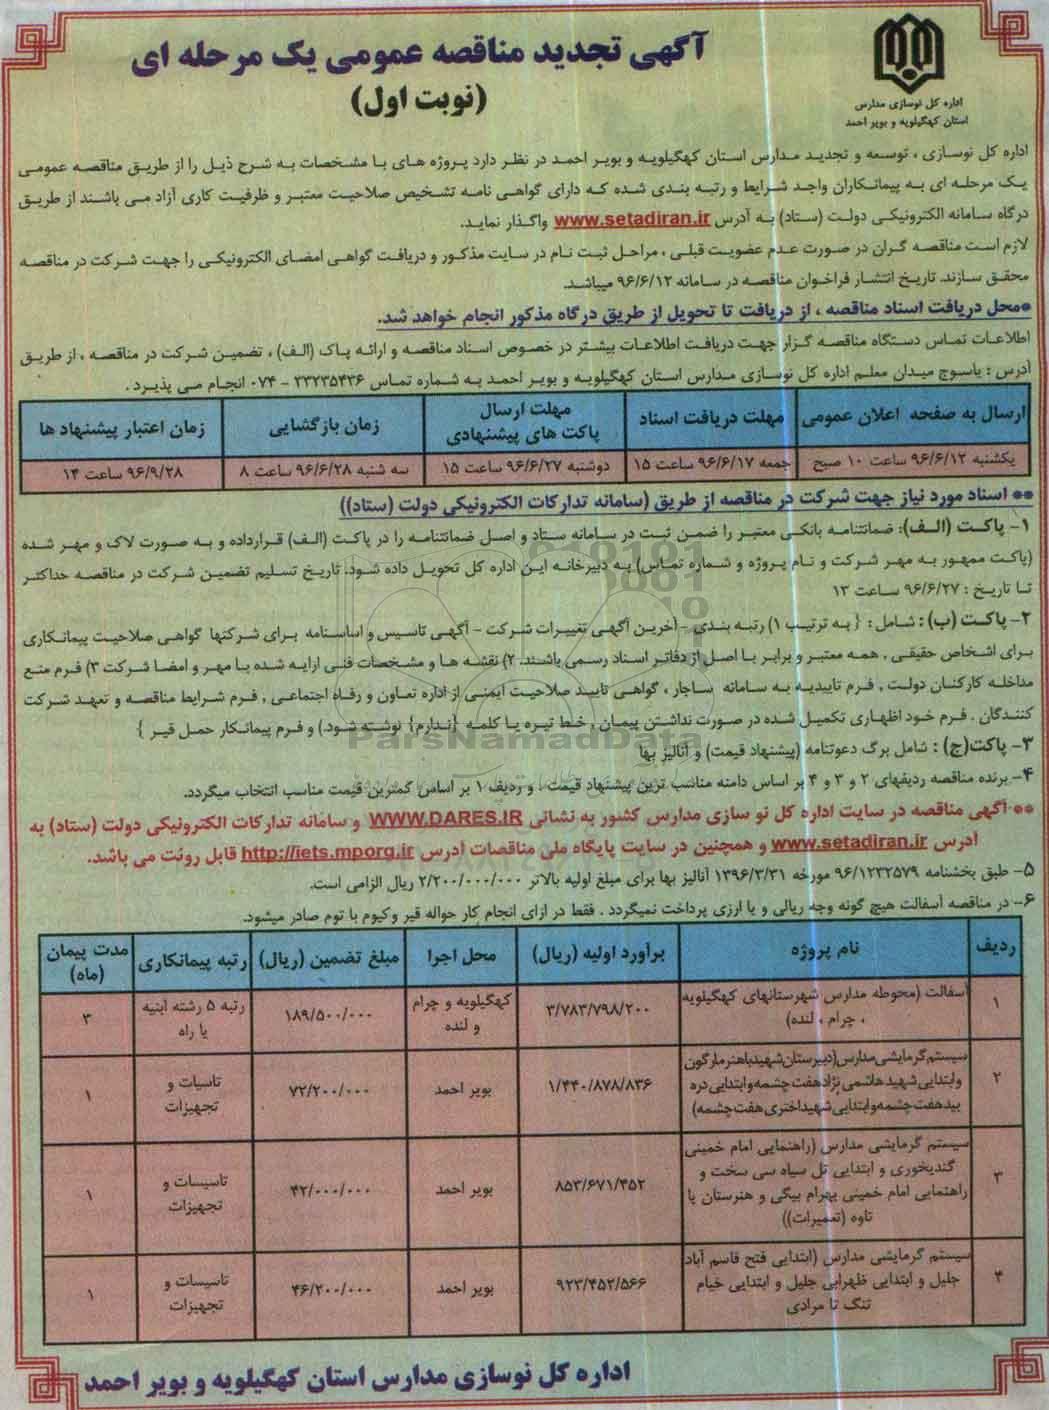 آگهی تجدید مناقصه عمومی یک مرحله ای
(نوبت اول)
اداره کل نوسازی مدارس
استان کهگیلویه و بویر احمد
اداره کل نوسازی ، توسعه و تجدید مدارس استان کهگیلویه و بویر احمد در نظر دارد پروژه های با مشخصات به شرح ذیل را از طریق مناقصه عمومی
یک مرحله ای به پیمانکاران واجد شرایط و رتبه بندی شده که دارای گواهی نامه تشخیص صلاحیت معتبر و ظرفیت کاری آزاد می باشند از طریق
درگاه سامانه الکترونیکی دولت (ستاد) به آدرس www.setadiran.ir واگذار نماید.
لازم است مناقصه گران در صورت عدم عضویت قبلی ، مراحل ثبت نام در سایت مذکور و دریافت گواهی امضای الکترونیکی را جهت شرکت در مناقصه
محقق سازند. تاریخ انتشار فراخوان مناقصه در سامانه ۹۶/۶/۱۲ میباشد.
*محل دریافت اسناد مناقصه ، از دریافت تا تحویل از طریق درگاه مذکور انجام خواهد شد.
اطلاعات تماس دستگاه مناقصه گزار جهت دریافت اطلاعات بیشتر در خصوص اسناد مناقصه و ارائه پاک (الف) ، تضمین شرکت در مناقصه ، از طریق
آدرس : یاسوج میدان معلم اداره کل نوسازی مدارس استان کهگیلویه و بویر احمد به شماره تماس ۳۳۲۳۵۴۳۶ - ۰۷۴ انجام می پذیرد .
ارسال به صفحه اعلان عمومی | مهلت دریافت اسناد | مهلت ارسال پاکت های پیشنهادی | زمان بازگشایی | زمان اعتبار پیشنهاد ها
یکشنبه ۹۶/۶/۱۲ ساعت ۱۰ صبح | جمعه ۹۶/۶/۱۷ ساعت ۱۵ | دوشنبه ۹۶/۶/۲۷ ساعت ۱۵ | سه شنبه ۹۶/۶/۲۸ ساعت ۸ | ۹۶/۹/۲۸ ساعت ۱۴
** اسناد مورد نیاز جهت شرکت در مناقصه از طریق (سامانه تدارکات الکترونیکی دولت (ستاد))
۱- پاکت (الف): ضمانتنامه بانکی معتبر را ضمن ثبت در سامانه ستاد و اصل ضمانتنامه را در پاکت (الف) قرارداده و به صورت لاک و مهر شده
(پاکت ممهور به مهر شرکت و نام پروژه و شماره تماس) به دبیرخانه این اداره کل تحویل داده شود. تاریخ تسلیم تضمین شرکت در مناقصه حداکثر
تا تاریخ : ۹۶/۶/۲۷ ساعت ۱۳
۲- پاکت (ب) : شامل : { به ترتیب ۱) رتبه بندی - آخرین آگهی تغییرات شرکت - آگهی تاسیس و اساسنامه برای شرکتها گواهی صلاحیت پیمانکاری
برای اشخاص حقیقی ، همه معتبر و برابر با اصل از دفاتر اسناد رسمی باشند. ۲) نقشه ها و مشخصات فنی ارایه شده با مهر و امضا شرکت ۳) فرم منع
مداخله کارکنان دولت ، فرم تاییدیه به سامانه ساجار ، گواهی تایید صلاحیت ایمنی از اداره تعاون و رفاه اجتماعی ، فرم شرایط مناقصه و تعهد شرکت
کنندگان . فرم خود اظهاری تکمیل شده در صورت نداشتن پیمان ، خط تیره یا کلمه {ندارم} نوشته شود.) و فرم پیمانکار حمل قیر }
ParsNamadData
۳- پاکت(ج) : شامل برگ دعوتنامه (پیشنهاد قیمت) و آنالیز بها
۴- برنده مناقصه ردیفهای ۲ و ۳ و ۴ بر اساس دامنه مناسب ترین پیشنهاد قیمت ، و ردیف ۱ بر اساس کمترین قیمت مناسب انتخاب میگردد.
** آگهی مناقصه در سایت اداره کل نو سازی مدارس کشور به نشانی WWW.DARES.IR و سامانه تدارکات الکترونیکی دولت (ستاد) به
ادرس www.setadiran.ir و همچنین در سایت پایگاه ملی مناقصات ادرس http://iets.mporg.ir قابل رونت می باشد.
۵- طبق بخشنامه ۹۶/۱۲۳۲۵۷۹ مورخه ۱۳۹۶/۳/۳۱ آنالیز بها برای مبلغ اولیه بالاتر ۲/۲۰۰/۰۰۰/۰۰۰ ریال الزامی است.
۶- در مناقصه آسفالت هیچ گونه وجه ریالی و یا ارزی پرداخت نمیگردد . فقط در ازای انجام کار حواله قیر وکیوم با توم صادر میشود.
ردیف | نام پروژه | برآورد اولیه (ریال) | محل اجرا | مبلغ تضمین (ریال) | رتبه پیمانکاری | مدت پیمان (ماه)
۱ | آسفالت (محوطه مدارس شهرستانهای کهگیلویه ، چرام ، لنده) | ۳/۷۸۳/۷۹۸/۲۰۰ | کهگیلویه و چرام و لنده | ۱۸۹/۵۰۰/۰۰۰ | رتبه ۵ رشته ابنیه یا راه | ۳
۲ | سیستم گرمایشی مدارس(دبیرستان شهید باهنر مارگون و ابتدایی شهید هاشمی نژاد هفت چشمه و ابتدایی دره بید هفت چشمه و ابتدایی شهید اختری هفت چشمه) | ۱/۴۴۰/۸۷۸/۸۳۶ | بویر احمد | ۷۲/۲۰۰/۰۰۰ | تاسیات و تجهیزات | ۱
۳ | سیستم گرمایشی مدارس (راهنمایی امام خمینی گندیخوری و ابتدایی تل سیاه سی سخت و راهنمایی امام خمینی بهرام بیگی و هنرستان پا تاوه (تعمیرات)) | ۸۵۳/۶۷۱/۴۵۲ | بویر احمد | ۴۲/۰۰۰/۰۰۰ | تاسیسات و تجهیزات | ۱
۴ | سیستم گرمایشی مدارس (ابتدایی فتح قاسم آباد جلیل و ابتدایی ظهرابی جلیل و ابتدایی خیام تنگ تا مرادی | ۹۲۳/۴۵۲/۵۶۶ | بویر احمد | ۴۶/۲۰۰/۰۰۰ | تاسیسات و تجهیزات | ۱
اداره کل نوسازی مدارس استان کهگیلویه و بویر احمد